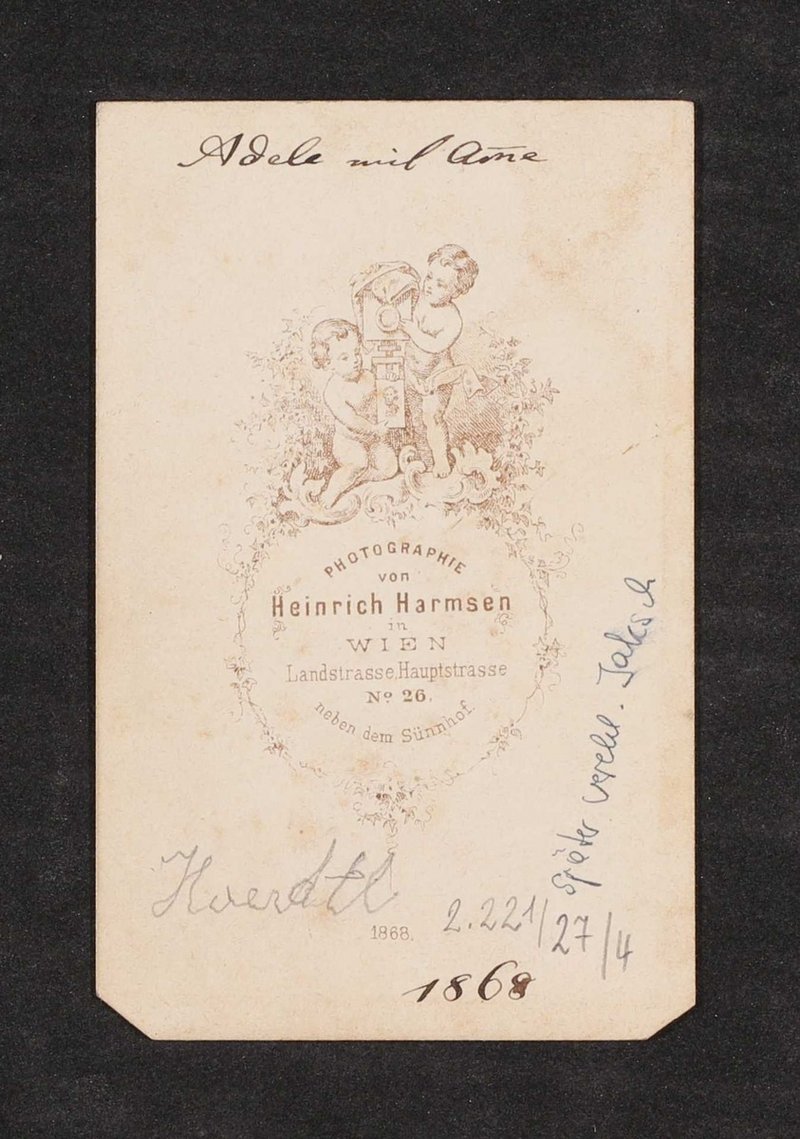 Adele mit Am̄e
PHOTOGRAPHIE
von
Heinrich Harmsen
in
WIEN
Landstrasse, Hauptstrasse
No 26.
neben dem Sünnhof.
später verehl. Jaksch
1868.
2.221/27/4
1868